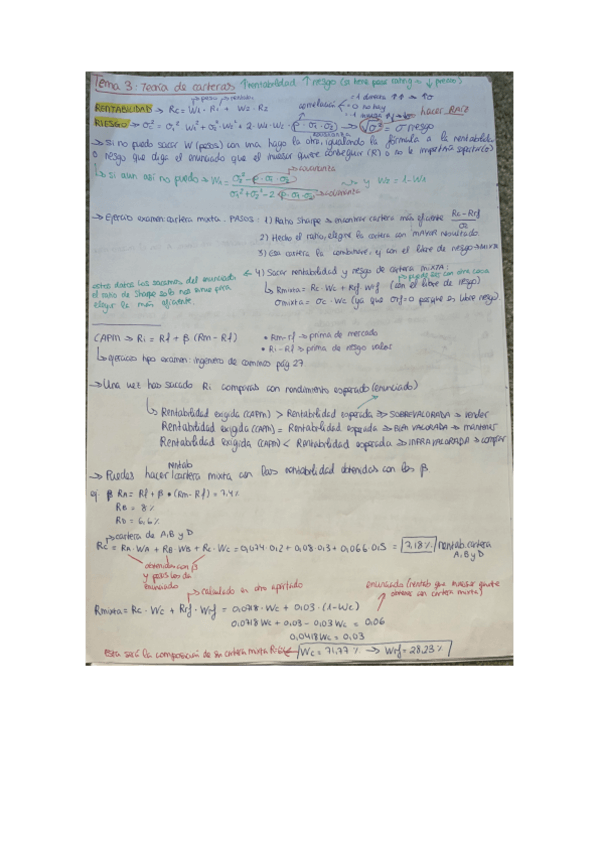 Tema 3: Teoría de carteras ↑rentabilidad ↑riesgo (si tiene peor rating ≈ ↓ precio)
→ peso → rentab.
RENTABILIDAD → Rc = W1 · R1 + W2 · R2
correlación
1 directa ↑↑ → ↑σ
= 0 no hay
hacer RAIZ
RIESGO → σc² = σ1² · W1² + σ2² · W2² + 2 · W1 · W2 · ρ · σ1 · σ2 → √σ² = σ riesgo
covarianza
→ si no puedo sacar W (pesos) con una hago la otra, igualando la fórmula a la rentabilidad
o riesgo que diga el enunciado que el inversor quiere conseguir (R)
→ covarianza
↳ si aun así no puedo → W1 = σ2² - ρ · σ1 · σ2 / σ1² + σ2² - 2 · ρ · σ1 · σ2 → y W2 = 1 - W1
→ covarianza
→ Ejercicio examen cartera mixta. PASOS: 1) Ratio Sharpe → encontrar cartera más eficiente Rc - Rrf / σc
2) Hecho el ratio, elegir la cartera con MAYOR resultado
3) Esa cartera la combinaré y con el libre de riesgo
← 4) Sacar rentabilidad y riesgo de cartera MIXTA:
→ puede ser con otra cosa
estos datos los sacamos del enunciado
↳ Rmixta = Rc · Wc + Rrf · Wrf (con el libre de riesgo)
el ratio de Sharpe solo nos sirve para
σmixta = σc · Wc (ya que σrf = 0 porque es libre riesgo)
elegir la más eficiente
CAPM → Ri = Rf + β (Rm - Rf)
• Rm - rf → prima de mercado
• Ri - Rf → prima de riesgo valor
↳ ejercicio tipo examen: ingeniero de caminos pág 27
→ Una vez has sacado Ri comparas con rendimiento esperado (enunciado)
↳ Rentabilidad exigida (CAPM) > Rentabilidad esperada → SOBREVALORADA → vender
Rentabilidad exigida (CAPM) = Rentabilidad esperada → BIEN VALORADA → mantener
Rentabilidad exigida (CAPM) < Rentabilidad esperada → INFRAVALORADA → comprar
rentab
→ Puedes hacer cartera mixta con las rentabilidad obtenidas con los β
ej. β RA = Rf + β • (Rm - Rf) = 7,4%
RB = 8%
RD = 6,6%
→ cartera de A, B y D
Rc = RA · WA + RB · WB + Rc · Wc = 0,074 · 0,2 + 0,08 · 0,3 + 0,066 · 0,5 = 7,18% rentab. cartera
A, B y D
obtenidas con β
y pesos los da
enunciado
→ calculado en otro apartado
enunciado (rentab que inversor quiere
obtener con cartera mixta)
Rmixta = Rc · Wc + Rrf · Wrf = 0,0718 · Wc + 0,03 · (1 - Wc)
0,0718 Wc + 0,03 - 0,03 Wc = 0,06
0,0418 Wc = 0,03
esta será la composición de su cartera mixta ← Wc = 71,77% → Wrf = 28,23%